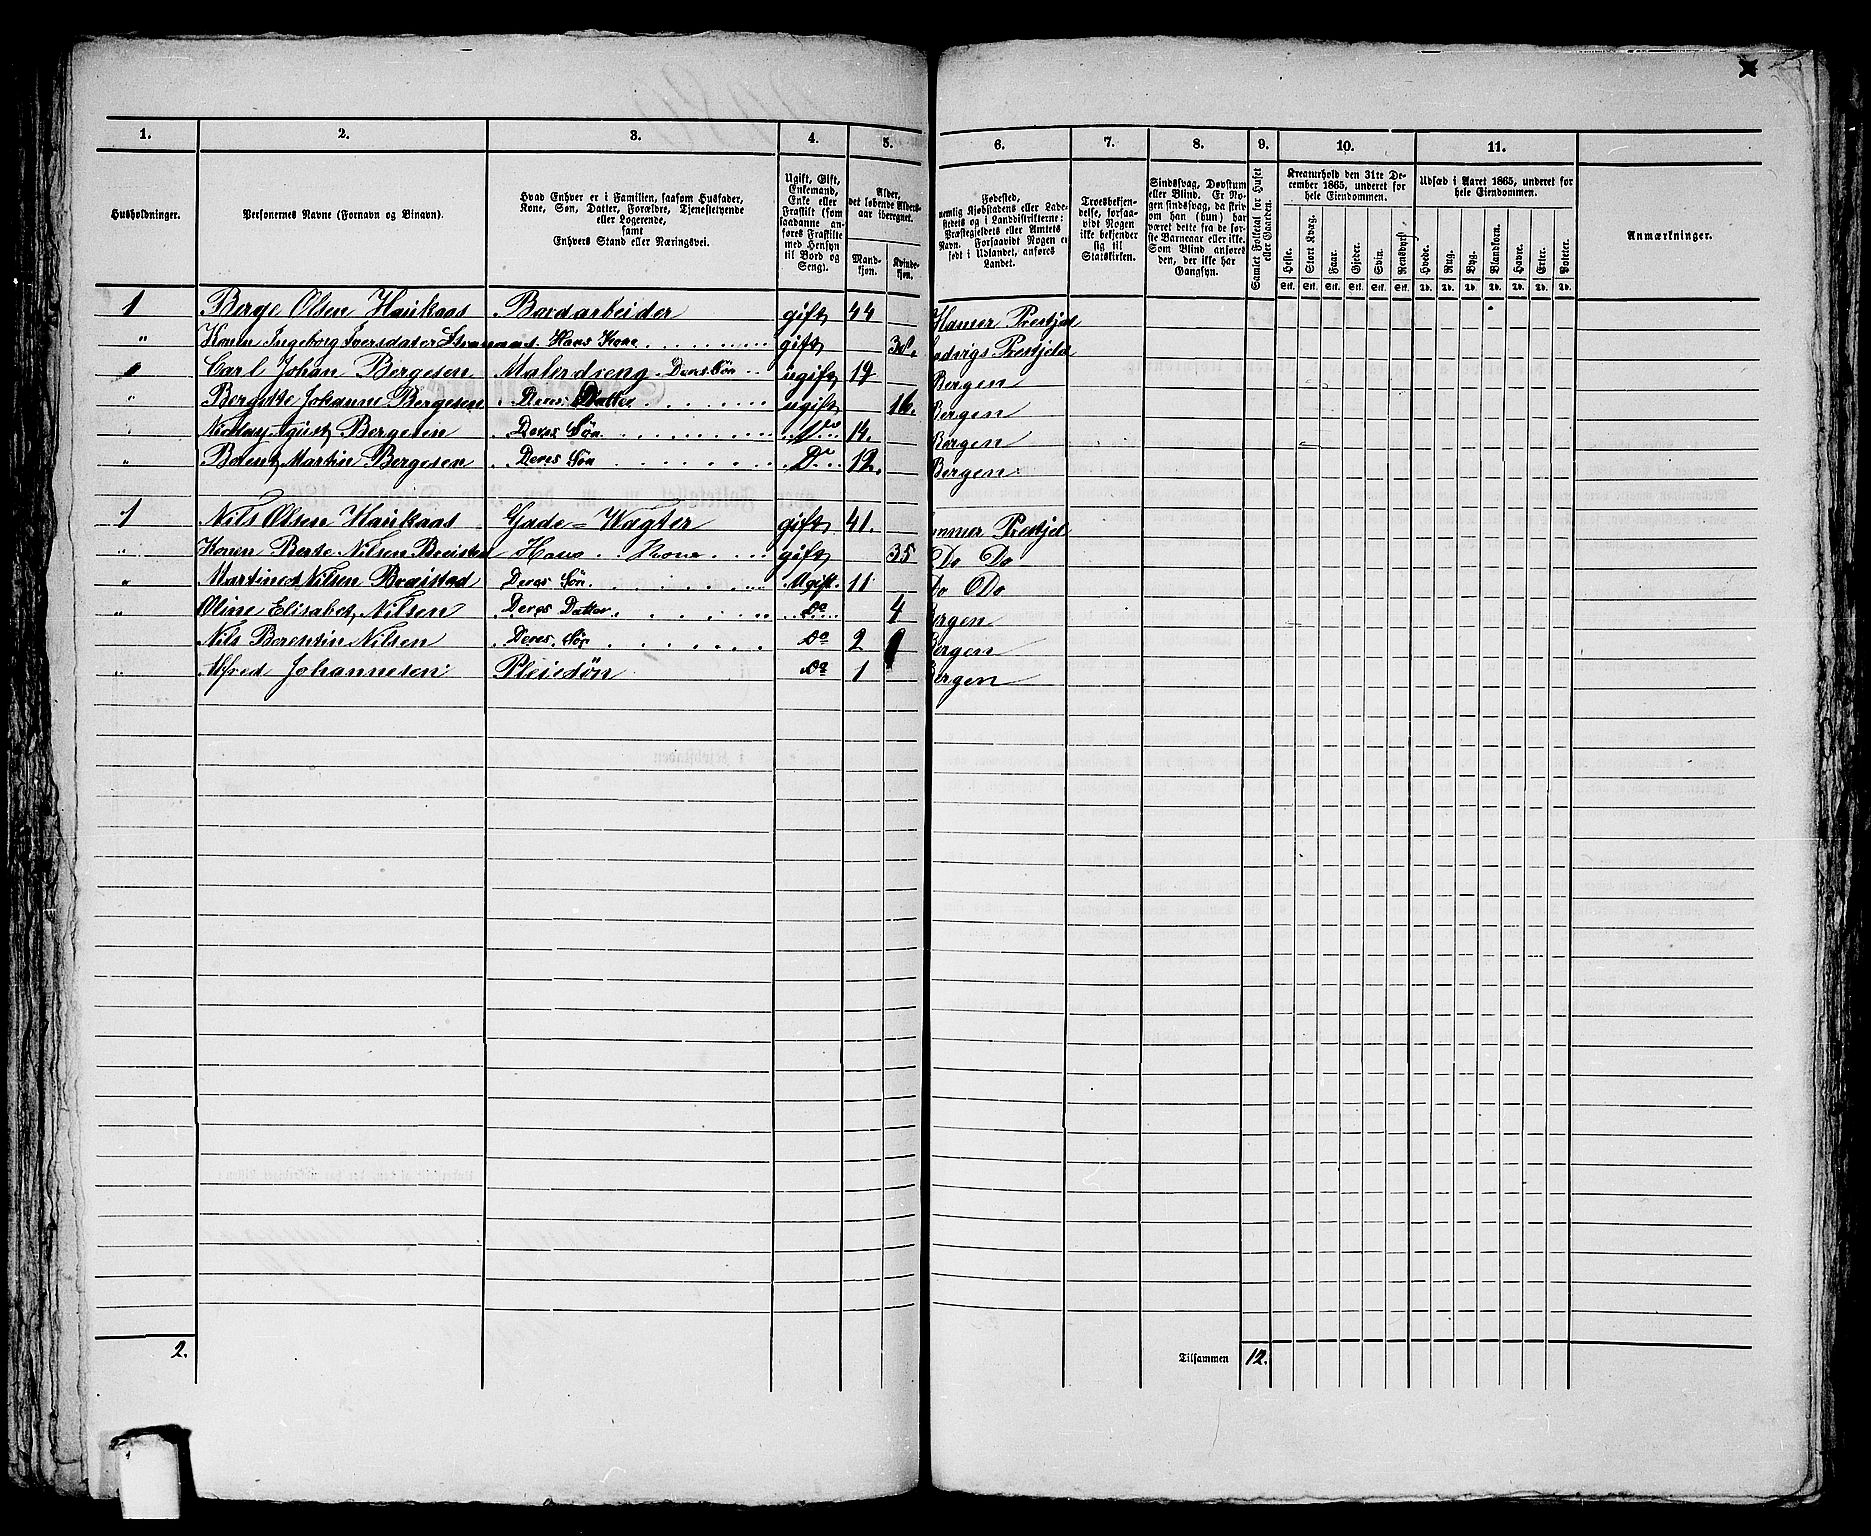 1. 2. 3. 4. 5. 6. 7. 8. 9. 10. 11.
Husholdninger.
Personernes Navne (Fornavn og Binavn).
Hvad Enhver er i Familien, saasom Husfader,
Kone, Søn, Datter, Forældre, Tjenestetyende
eller Logerende,
samt
Enhvers Stand eller Næringsvei.
Ugift, Gift,
Enkemand,
Enke eller
Fraskilt (som
saadanne an-
føres Fraskilte
med Hensyn
til Bord og
Seng).
Alder,
det løbende Alders-
aar iberegnet.
Mand-
kjøn.
Kvinde-
kjøn.
Fødested,
nemlig Kjøbstadens eller Lade-
stedets og i Landdistrikterne:
Præstegjeldets eller Amtets
Navn. Forsaavidt Nogen er
født i Udlandet, anføres
Landet.
Troesbekjen-
delse, forsaa-
vidt Nogen
ikke bekjender
sig til
Statskirken.
Sindssvag, Døvstum
eller Blind. Er No-
gen sindssvag, da skriv
om han (hun) har
været dette fra de før-
ste Barneaar eller ikke.
Som Blind anføres
den, der ikke har
Gangsyn.
Samlet Folketal for Huset
eller Gaarden.
Kreaturhold den 31te De-
cember 1865, underet for
hele Eiendommen.
Heste. Stort Kvæg. Faar. Gjeder. Svin. Rensdyr.
Stk. Stk. Stk. Stk. Stk. Stk.
Udsæd i Aaret 1865, underet for
hele Eiendommen.
Hvede. Rug. Byg. Blandkorn. Havre. Erter. Poteter.
Td. Td. Td. Td. Td. Td. Td.
Anmærkninger.
1 Berge Olsen Haukaas Bordarbeider gift 44 Hamer Prestjel
" Konen Ingeborg Iversdater Hans Kone gift 38. Prestjeld
Carl Johan Bergesen Malerdreng Deres Søn ugift 19 Bergen
" Bergitte Johanne Bergesen Deres Datter ugift 16. Bergen
" Nicolay Agust Bergesen Deres Søn Do 14. Bergen
" Berent Martin Bergesen Deres Søn Do 12. Bergen
1 Nils Olsen Haukaas Gade-Vægter gift 41. Prestjel
" Konen Berte Nilsen Hans Kone gift 35 Do Do
" Nilsen Deres Søn Ugift 11 Do Do
" Oline Elisabet Nilsen Deres Datter Do 4 Bergen
Nils Berentin Nilsen Deres Søn Do 2 Bergen
" Alfred Johannesen Pleiesøn Do 1 Bergen
2. Tilsammen 12.